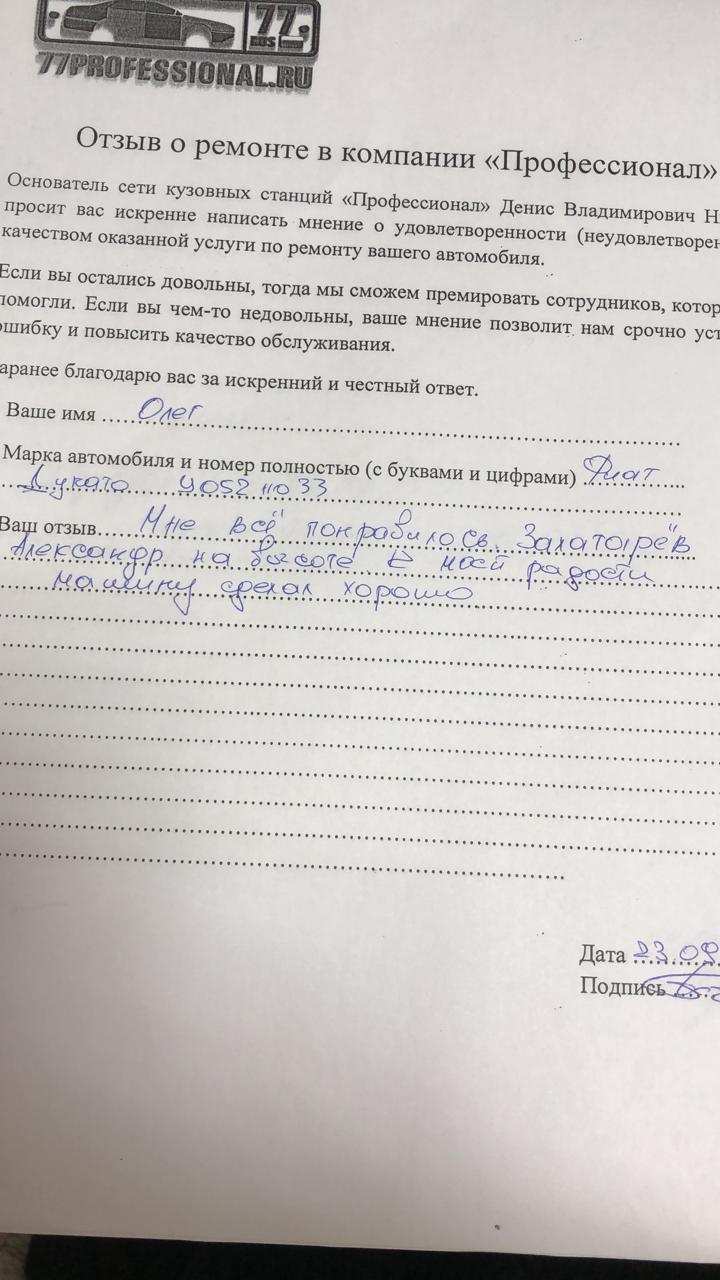 77
RUS
77PROFESSIONAL.RU
Отзыв о ремонте в компании «Профессионал»
Основатель сети кузовных станций «Профессионал» Денис Владимирович Н
просит вас искренне написать мнение о удовлетворенности (неудовлетворен
качеством оказанной услуги по ремонту вашего автомобиля.
Если вы остались довольны, тогда мы сможем премировать сотрудников, котор
помогли. Если вы чем-то недовольны, ваше мнение позволит нам срочно уст
ошибку и повысить качество обслуживания.
аранее благодарю вас за искренний и честный ответ.
Ваше имя Олег
Марка автомобиля и номер полностью (с буквами и цифрами) Фиат
Дукато У052 НО 33
Ваш отзыв Мне всё понравилось. Залатырёв
Александр на высоте К моей радости
машину сделал хорошо
Дата 23.09.
Подпись